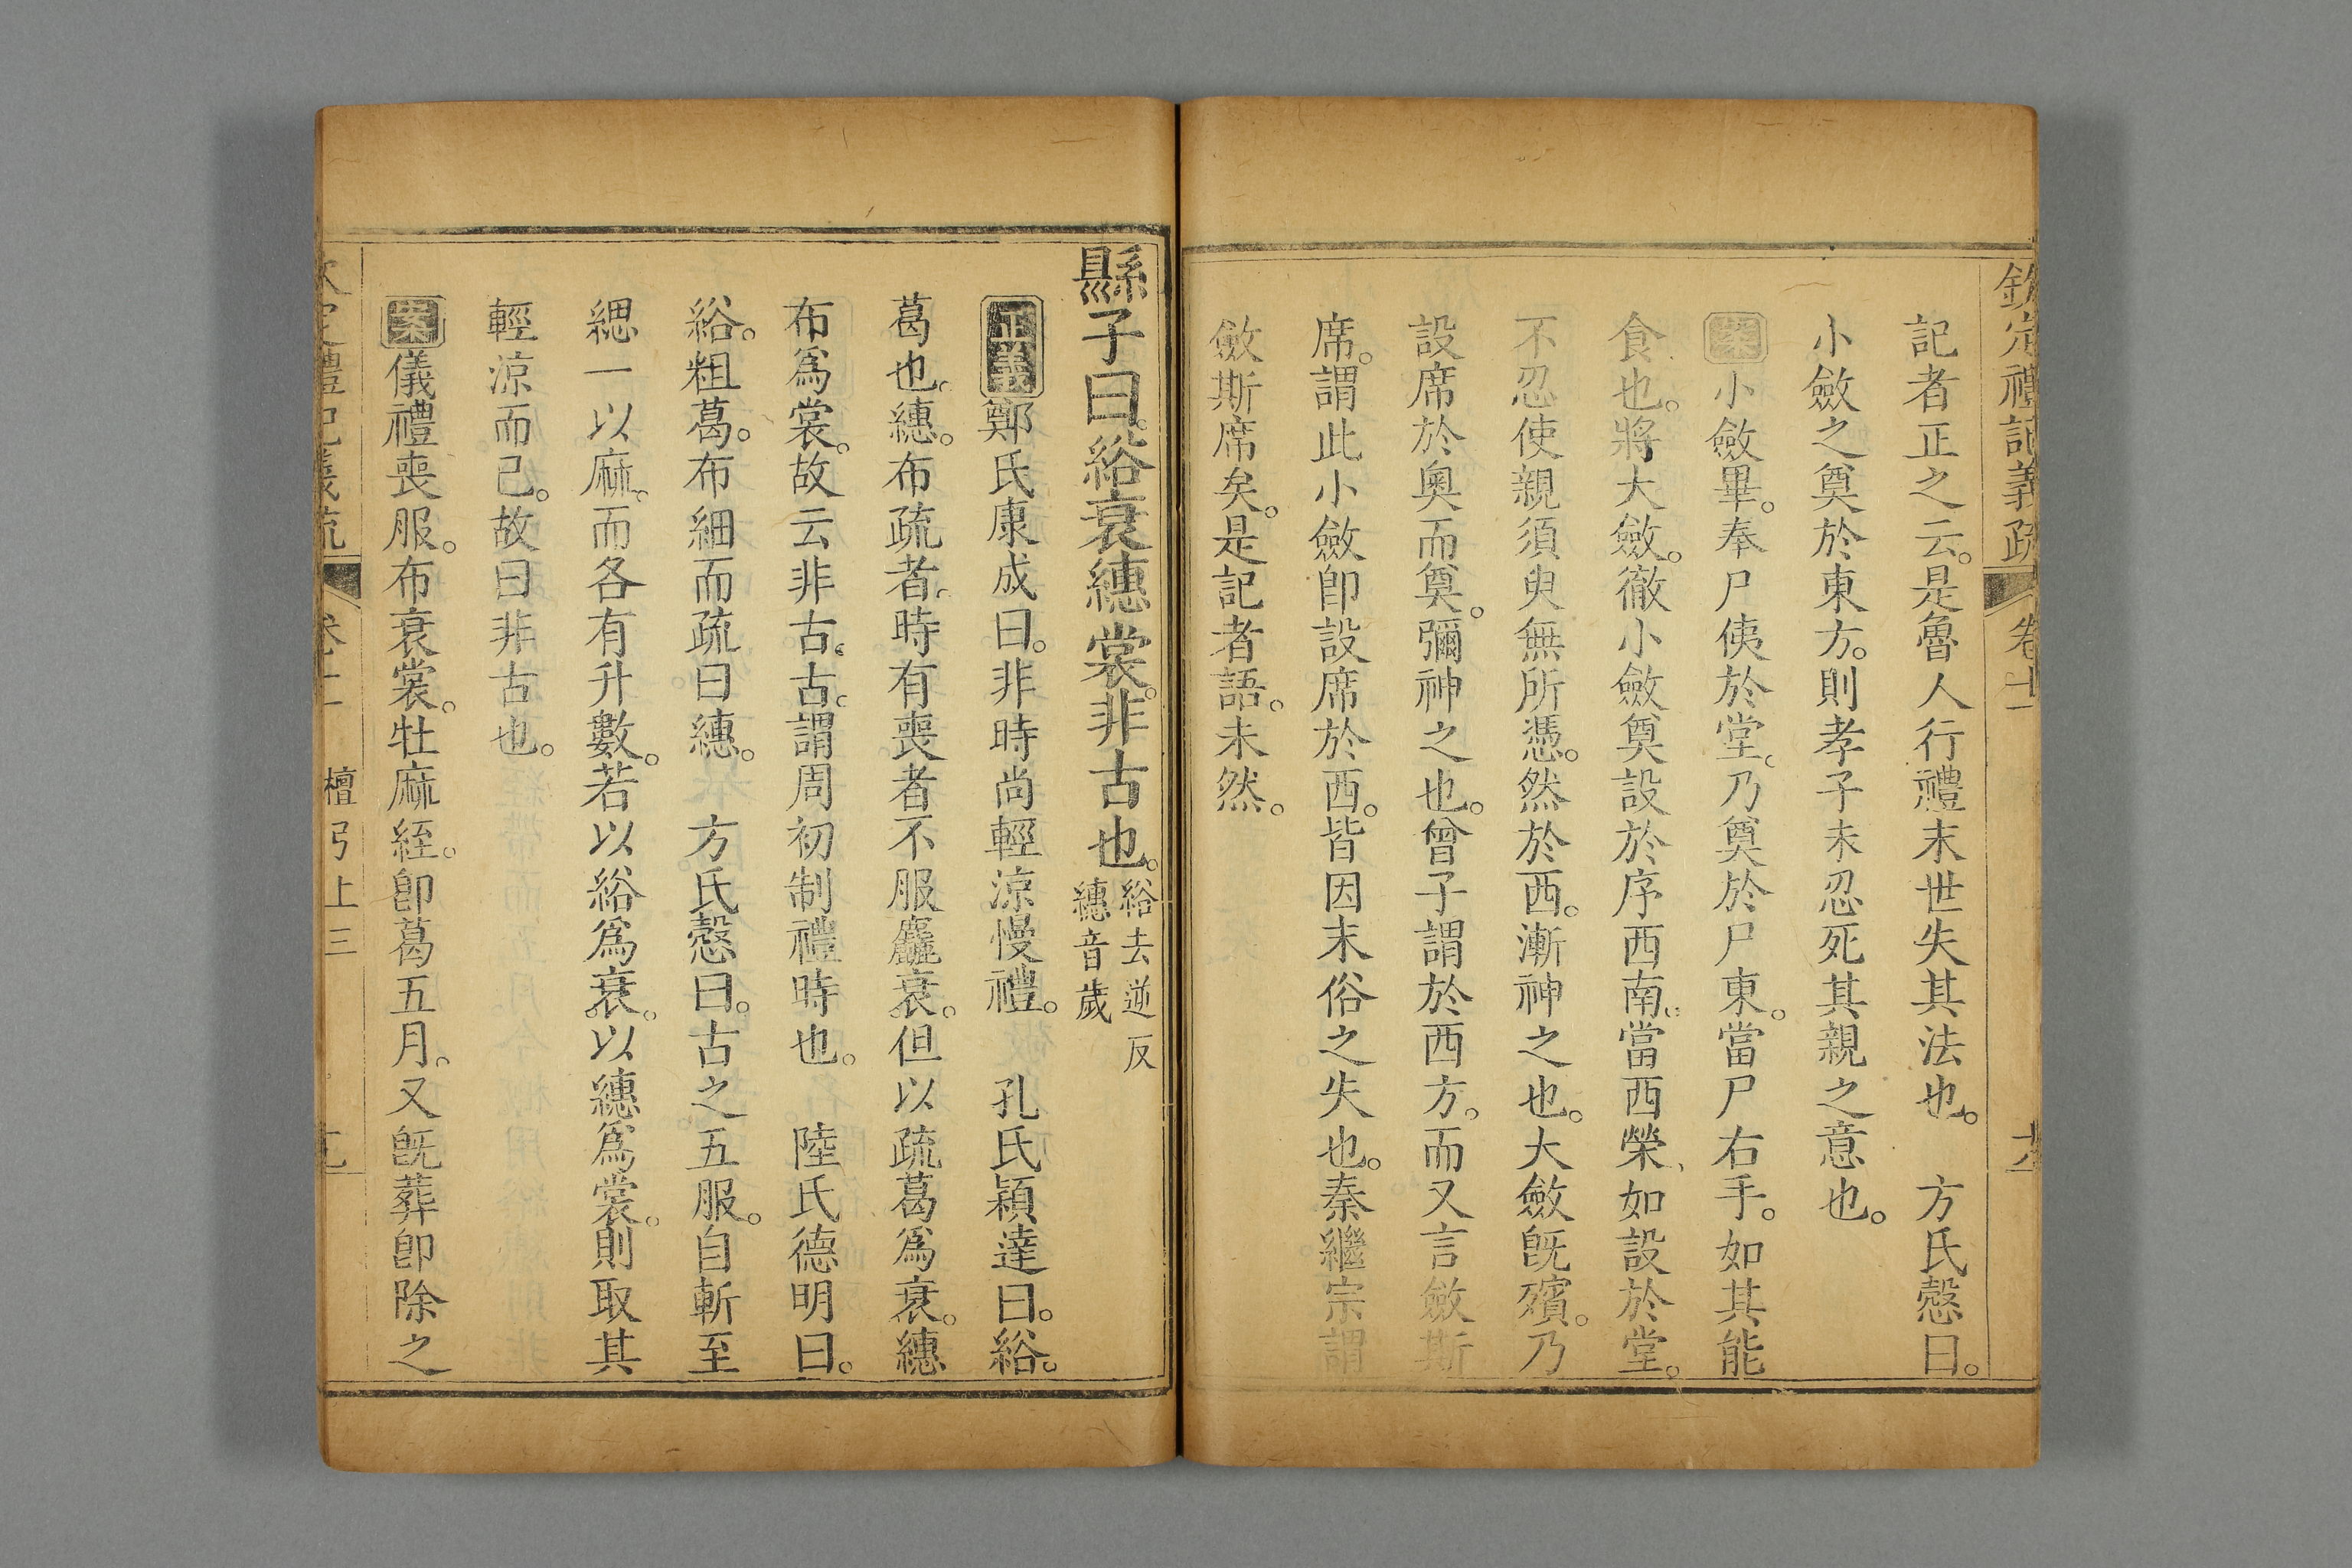 欽定禮記義疏 卷十一
記者正之云。是魯人行禮末世失其法也。 方氏慤曰。
小斂之奠於東方。則孝子未忍死其親之意也。
案小斂畢。奉尸侇於堂。乃奠於尸東。當尸右手。如其能
食也。將大斂。徹小斂奠設於序西南。當西榮、如設於堂。
不忍使親須臾無所憑。然於西。漸神之也。大斂旣殯。乃
設席於奧而奠。彌神之也。曾子謂於西方。而又言斂斯
席。謂此小斂卽設席於西。皆因末俗之失也。秦繼宗謂
斂斯席矣。是記者語。未然。
縣子曰。綌衰繐裳。非古也。綌去逆反
繐音歲
正義鄭氏康成曰。非時尚輕涼慢禮。 孔氏穎達曰。綌。
葛也。繐。布疏者。時有喪者不服麤衰。但以疏葛爲衰。繐
布爲裳。故云非古。古。謂周初制禮時也。 陸氏德明曰。
綌。粗葛。布細而疏曰繐。 方氏慤曰。古之五服。自斬至
緦一以麻。而各有升數。若以綌爲衰。以繐爲裳。則取其
輕涼而已。故曰非古也。
案儀禮喪服。布衰裳。牡麻絰。卽葛五月。又旣葬卽除之
檀弓上三